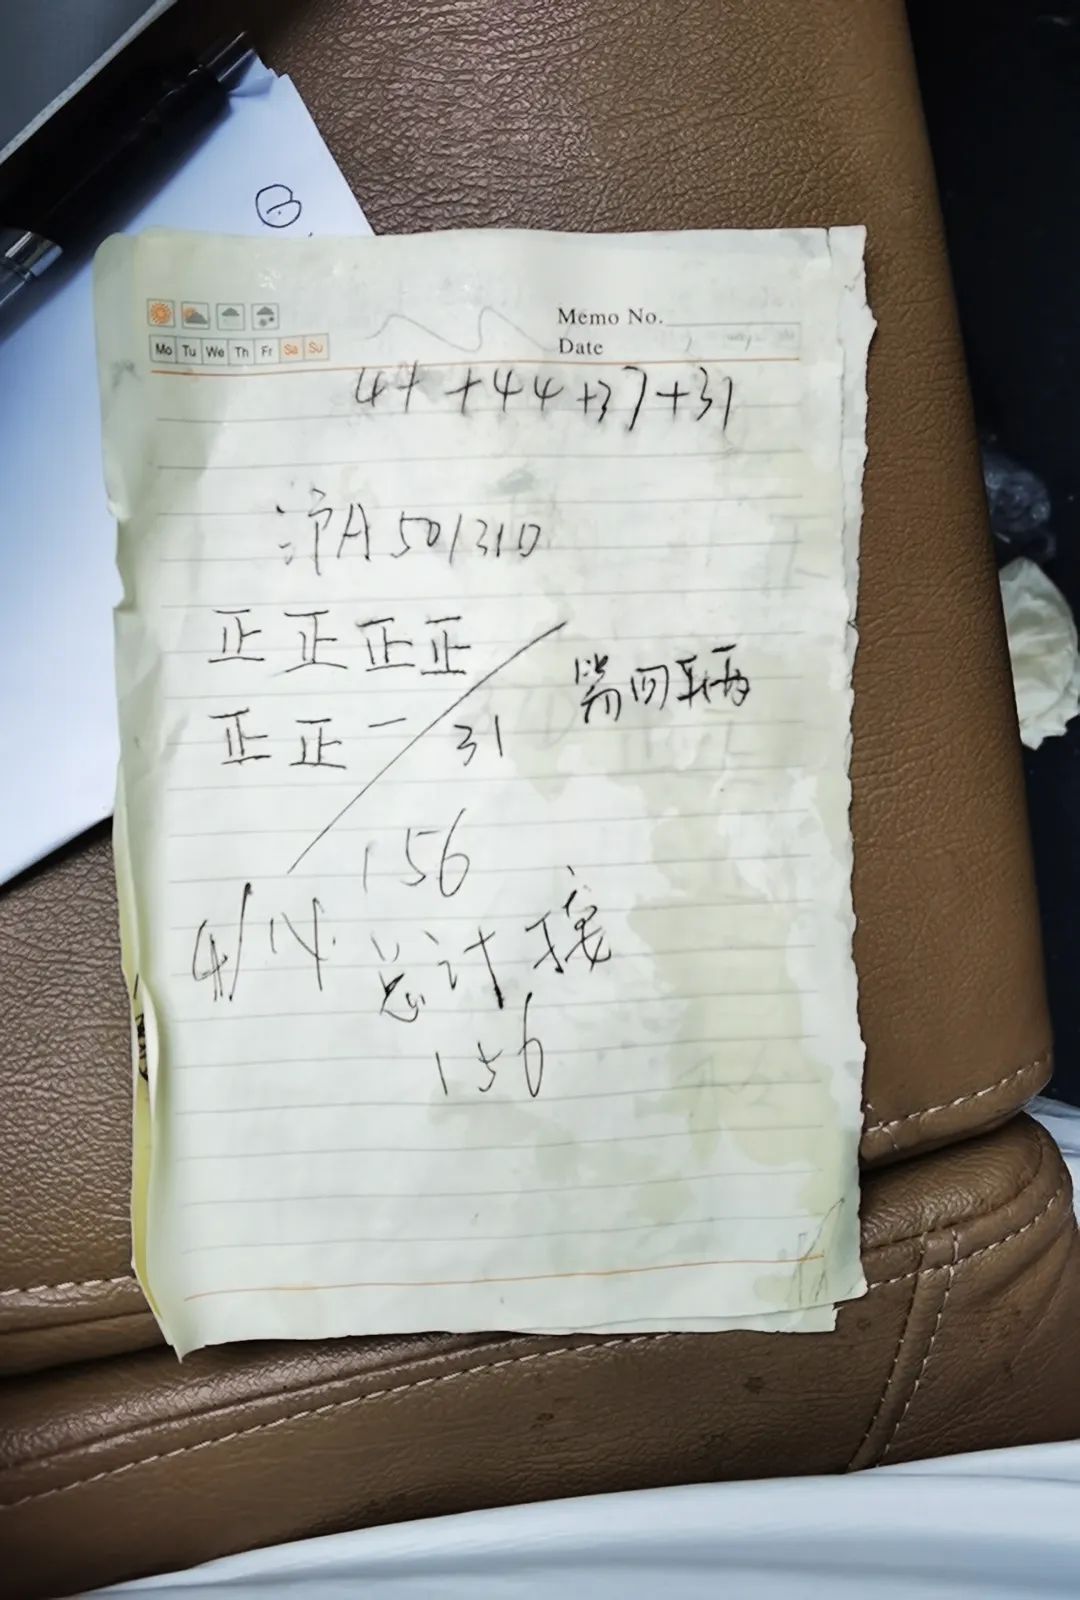 B
Memo No.
Mo Tu We Th Fr Sa Su
Date
44+44+37+31
沪A 501310
正正正正
第四辆
正正一 31
156
4/14 总计接
156